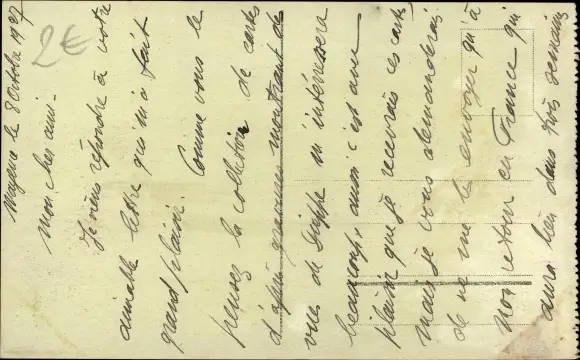 Mayence le 8 Octobre 1927
2€
Mon cher ami.
Je viens répondre à votre
aimable lettre qui m'a fait
grand plaisir. Comme vous le
pensez la collection de cartes
d'après guerre montrant des
vues de Dieppe m'intéressera
beaucoup, aussi c'est avec
plaisir que je recevrais ces cartes
mais je vous demanderais
de ne me les envoyer qu'à
mon retour en France qui
aura lieu dans trois semaines